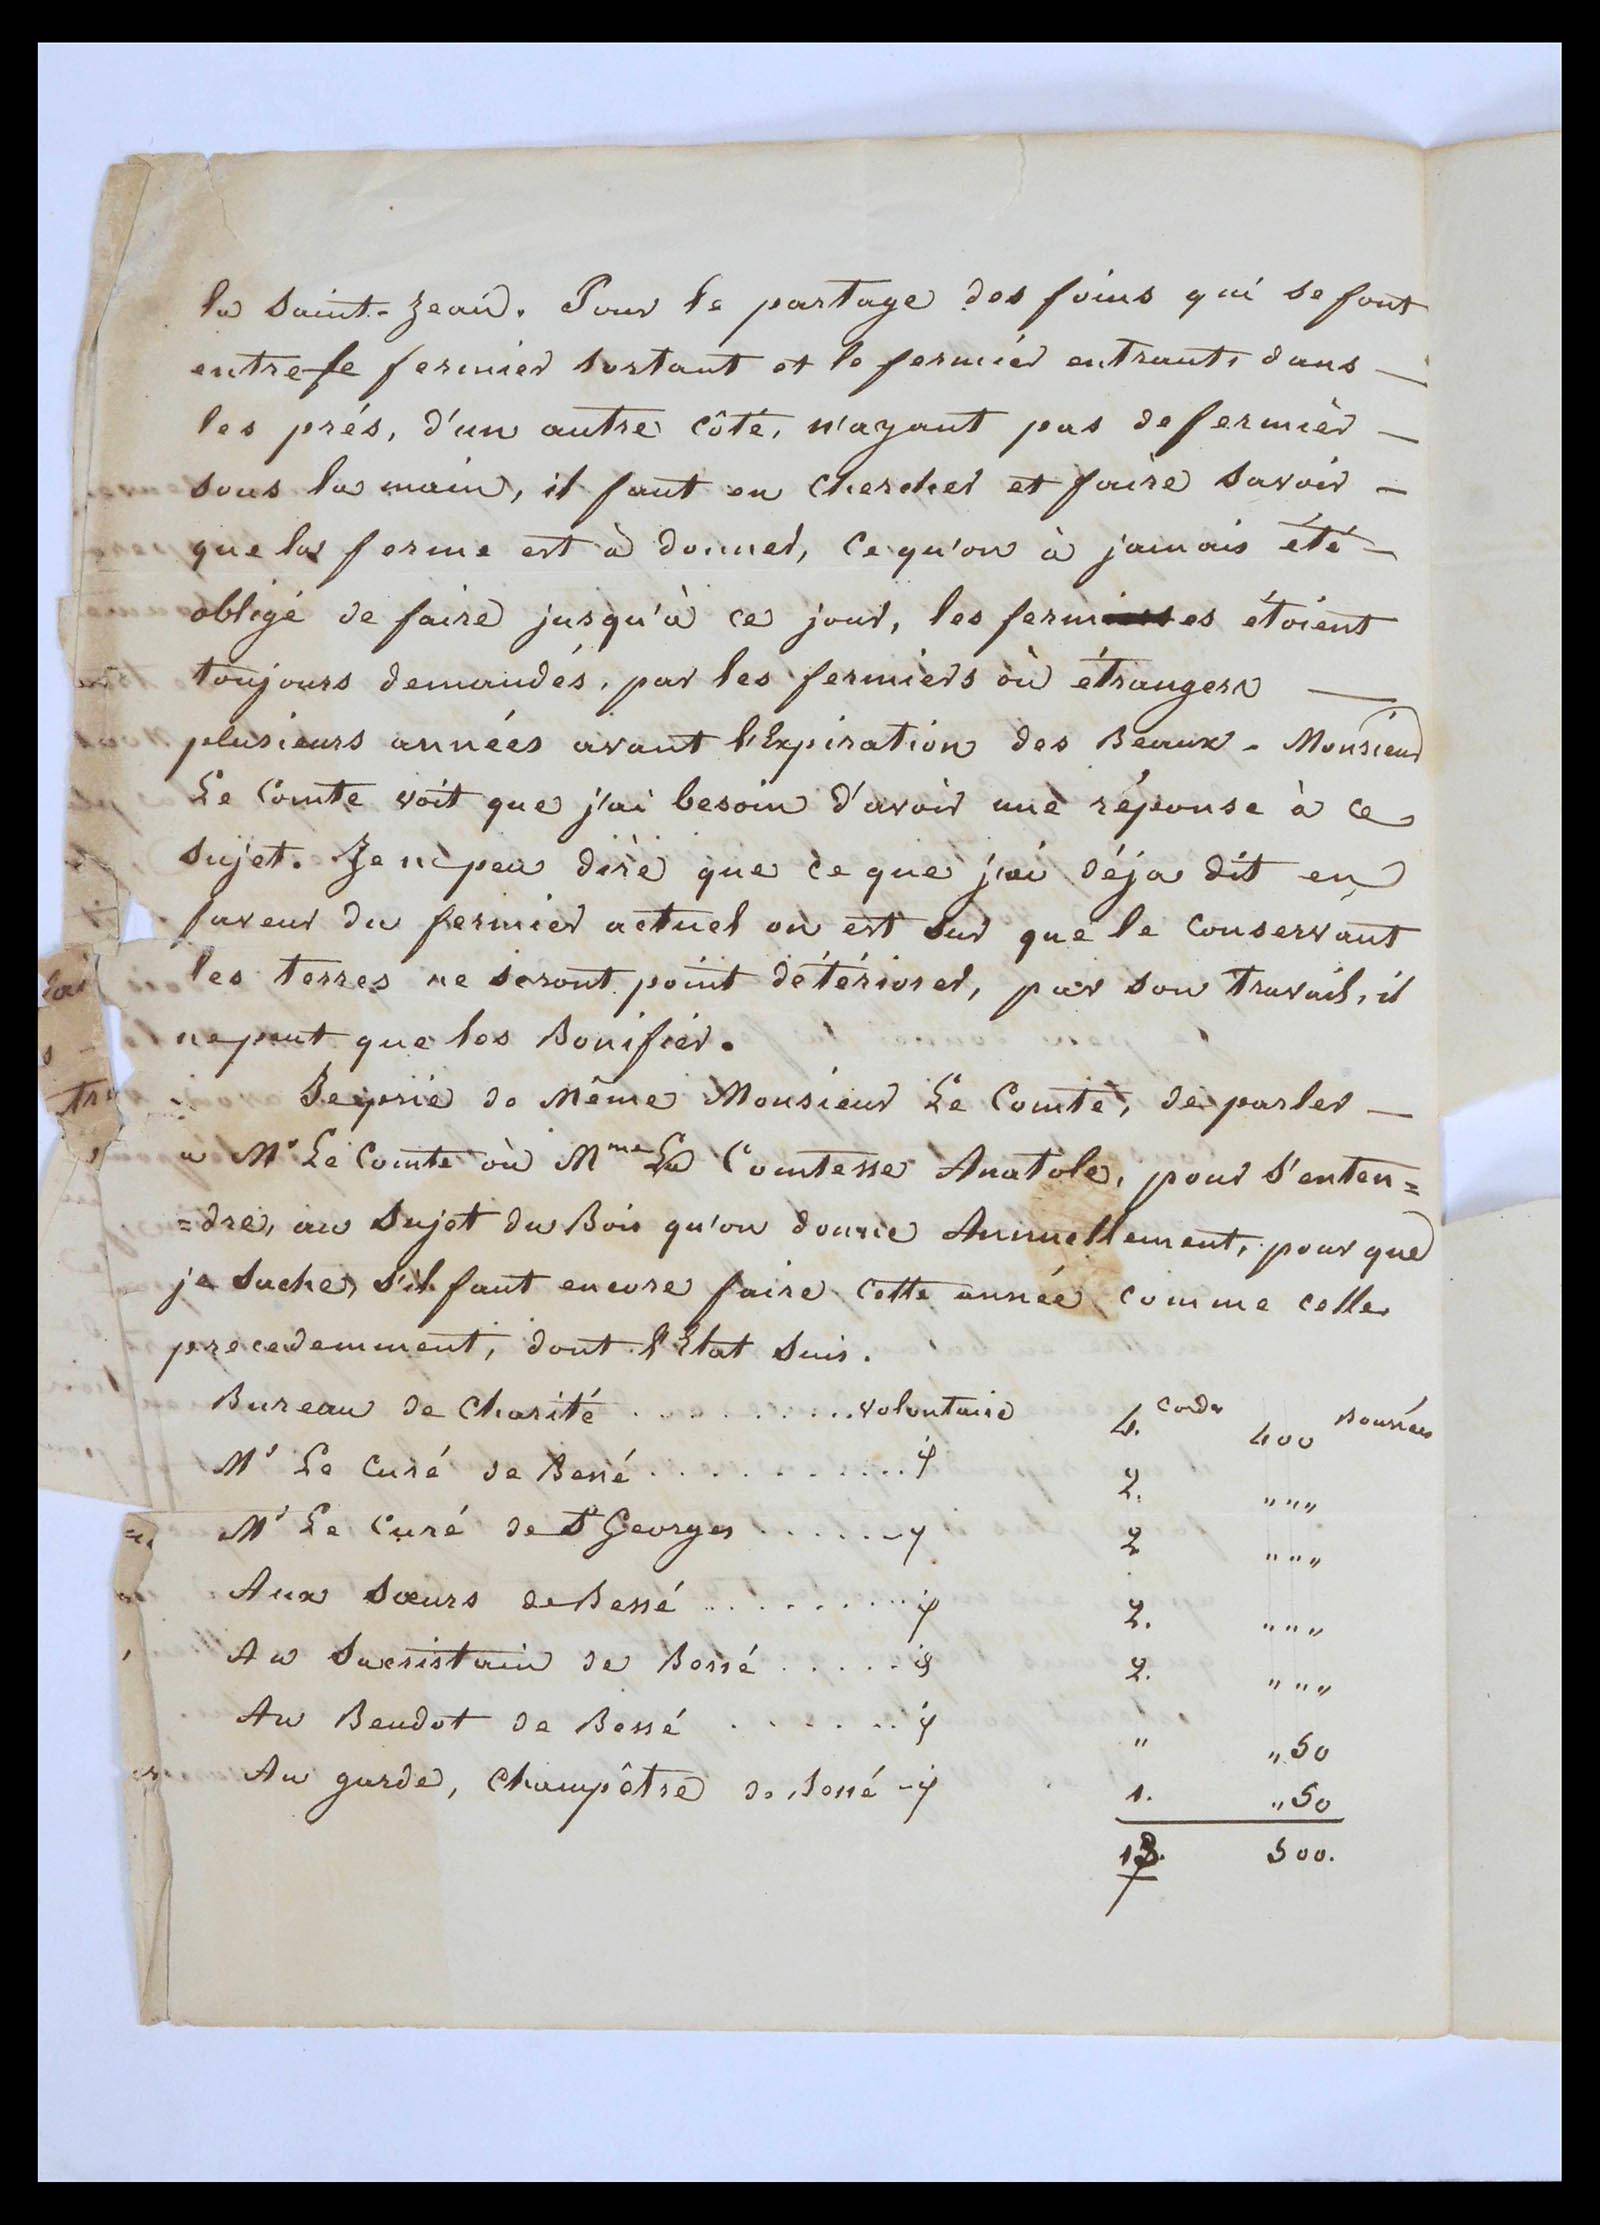 la Saint-Jean. Pour le partage des foins qui se font
entre le fermier sortant et le fermier entrant, dans —
les prés, d'un autre côté, n'ayant pas de fermier —
sous la main, il faut en chercher et faire savoir —
que la ferme est à donner, ce qu'on à jamais été —
obligé de faire jusqu'à ce jour, les fermes étoient
toujours demandés, par les fermiers où étrangers —
plusieurs années avant l'Expiration des Beaux - Monsieur
Le Comte voit que j'ai besoin d'avoir une réponse à ce
sujet. Je ne peu dire que ce que j'ai déja dit en
faveur du fermier actuel on est sur que le conservant
les terres ne seront point détériorer, par son travail, il
ne peut que les Bonifier.
Je prie de Même Monsieur Le Comte, de parler —
a Mr Le Comte où Mme La Comtesse Anatole, pour s'enten=
=dre, au Sujet du Bois qu'on donne Annuellement, pour que
je sache, s'il faut encore faire cette année comme celle
precedemment, dont l'Etat suis.
Bureau de Charité . . . . . . . . . . volontaire 4. Cordes 400 Bourrées
Mr Le Curé de Bessé . . . . . . . . . . . id 2. " " "
Mr Le Curé de St Georges . . . . . . id 2 " " "
Aux Sœurs de Bessé . . . . . . . . . id 2. " " "
Au Sacristain de Bessé . . . . . id 2. " " "
Au Bendot de Bessé . . . . . . id " " 50
Au garde, Champêtre de Bessé - id 1. " 50
13. 500.